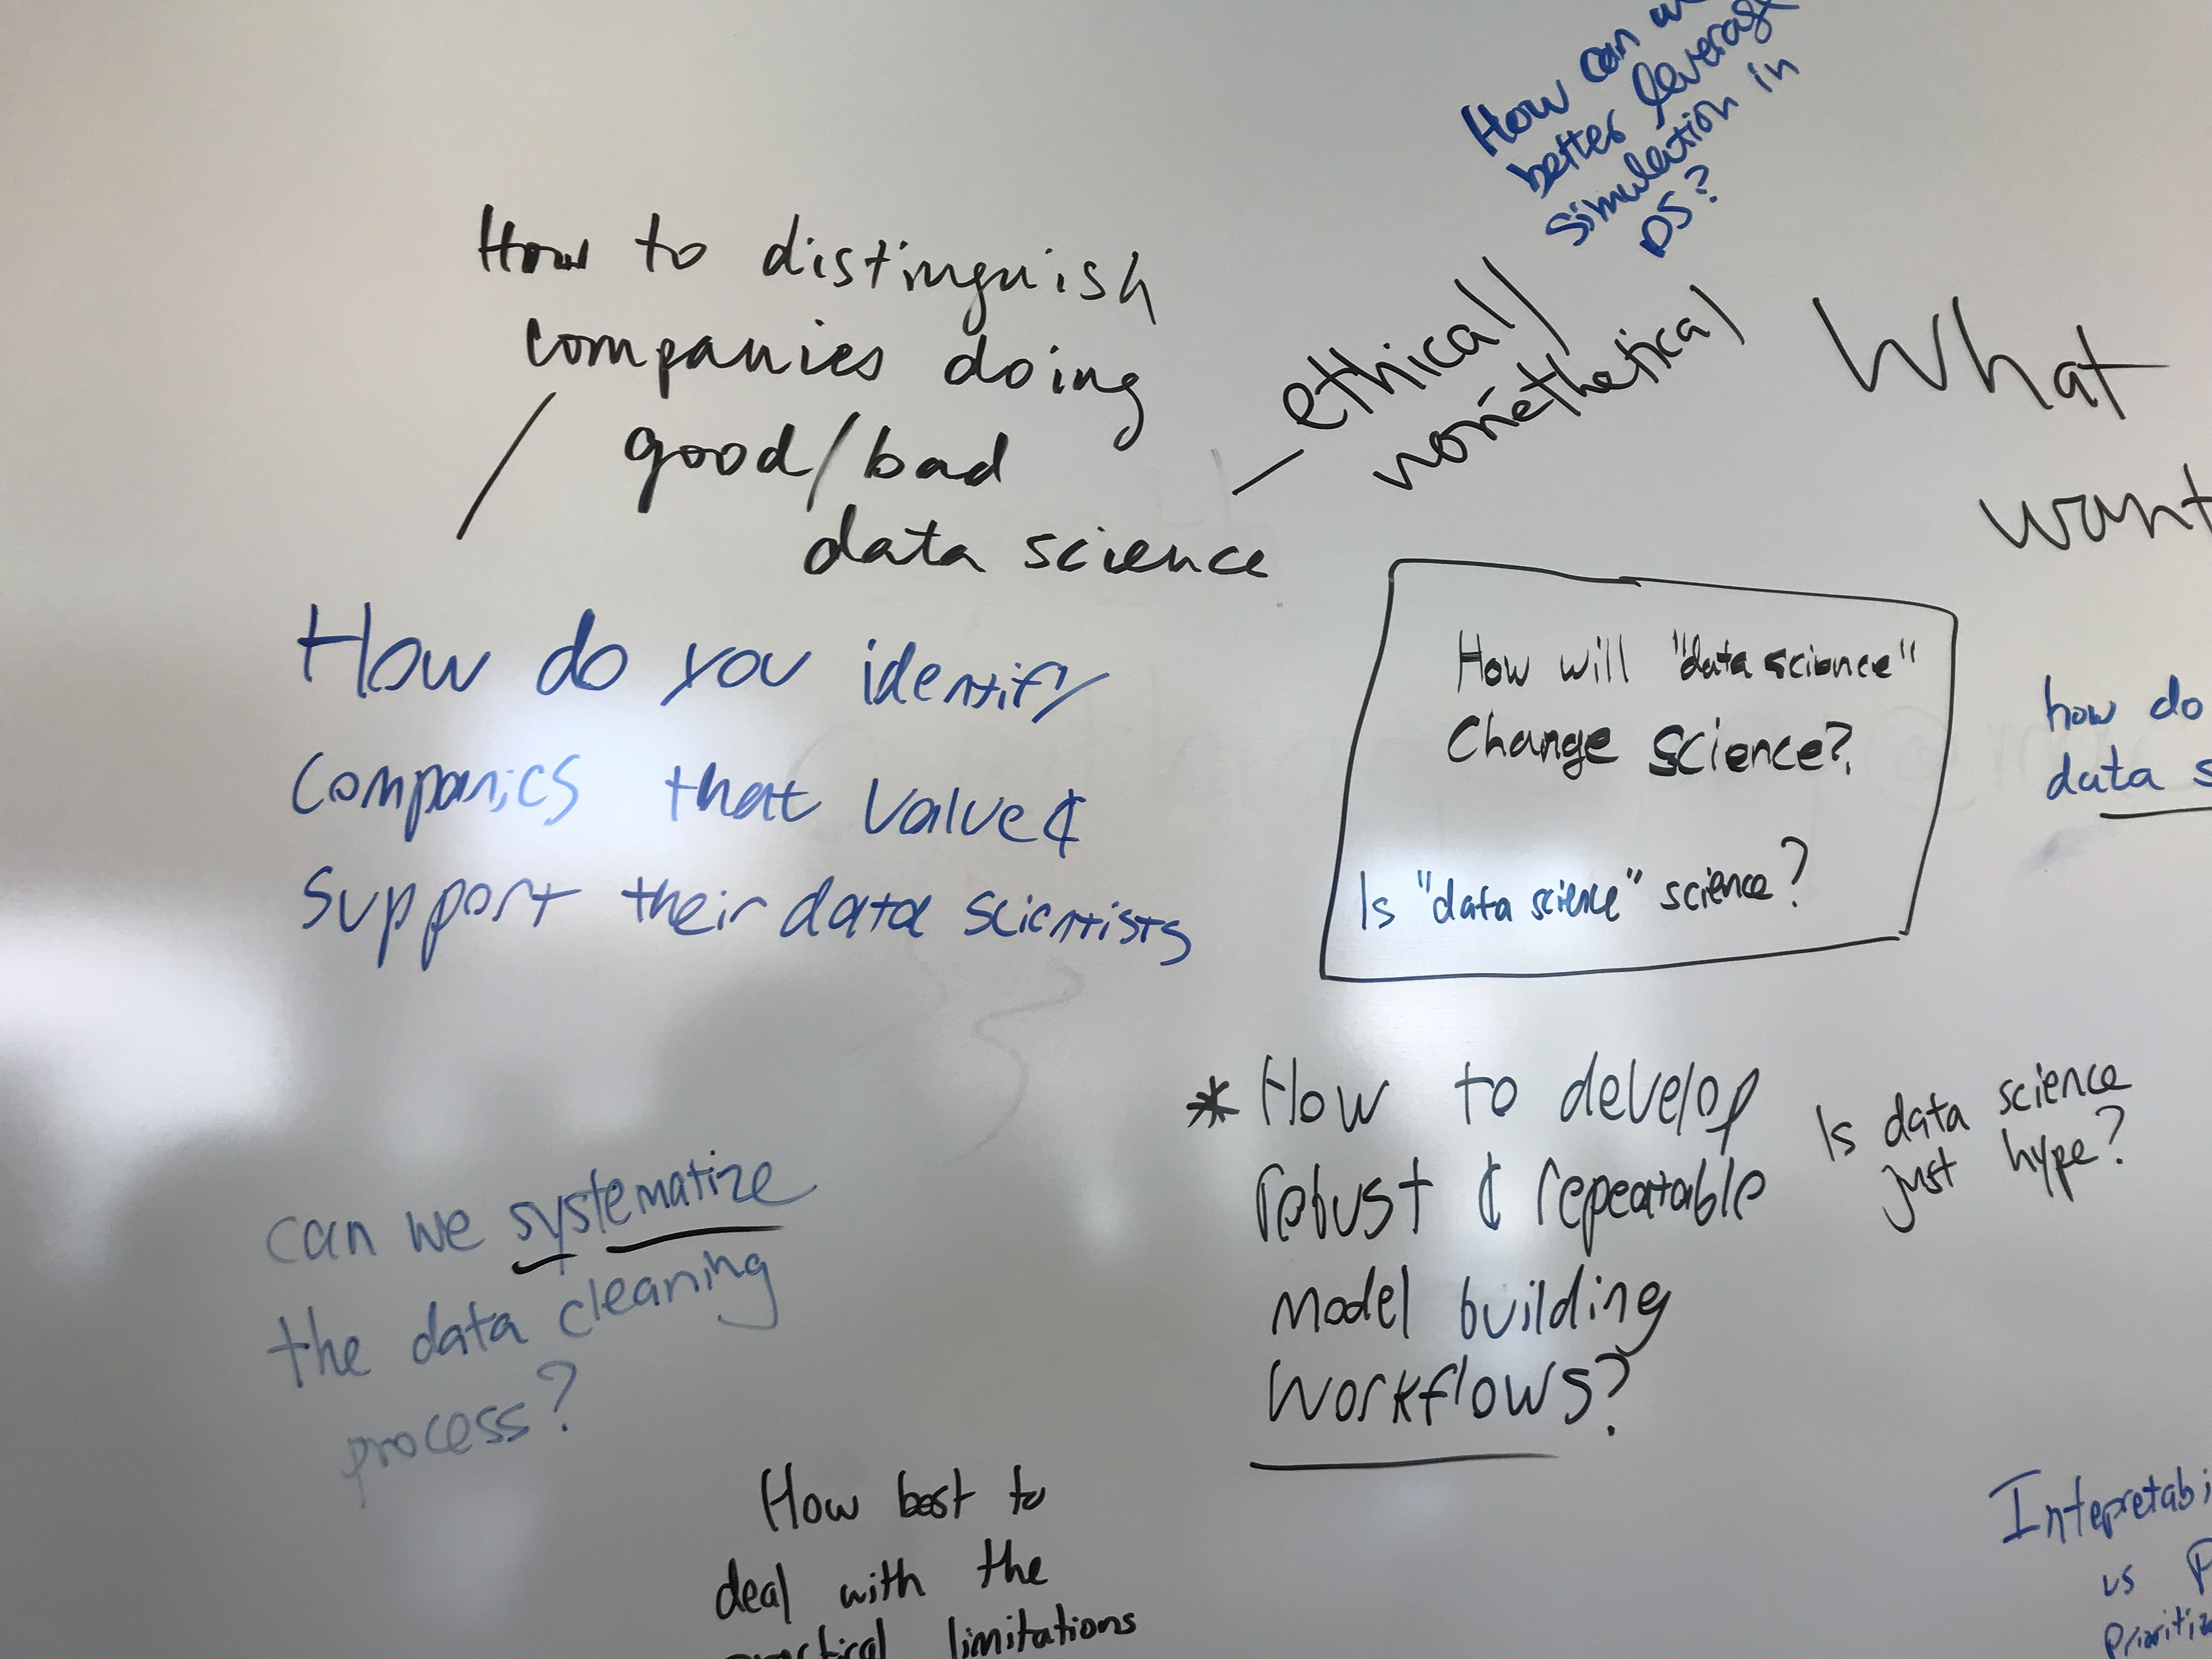 How can
better leverag
simulation in
DS?
How to distinguish
companies doing
good/bad
data science
ethical/
non-ethetical
What
want
How do you identify
companies that value &
support their data scientists
How will "data science"
Change science?
Is "data science" science?
how do
data s
* How to develop
robust & repeatable
model building
workflows?
Is data science
just hype?
can we systematize
the data cleaning
process?
How best to
deal with the
limitations
Intepretabi
vs P
Prioritiz